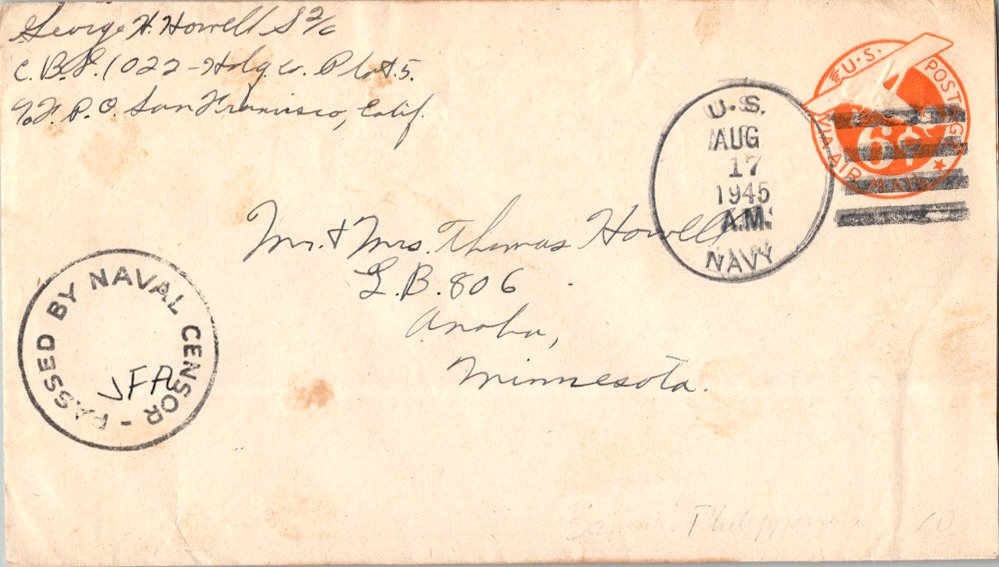 George H. Howell S 2/c
C.B.D. 1022 - Hdq. Co. Plat. 5.
% F. P. O. San Francisco, Calif.
U.S. POSTAGE
VIA AIR MAIL
6¢
U.S.
AUG
17
1945
A.M.
NAVY
Mr. & Mrs. Thomas Howell
L.B. 806
Anoka,
Minnesota.
PASSED BY NAVAL CENSOR -
Samar Philippines 10